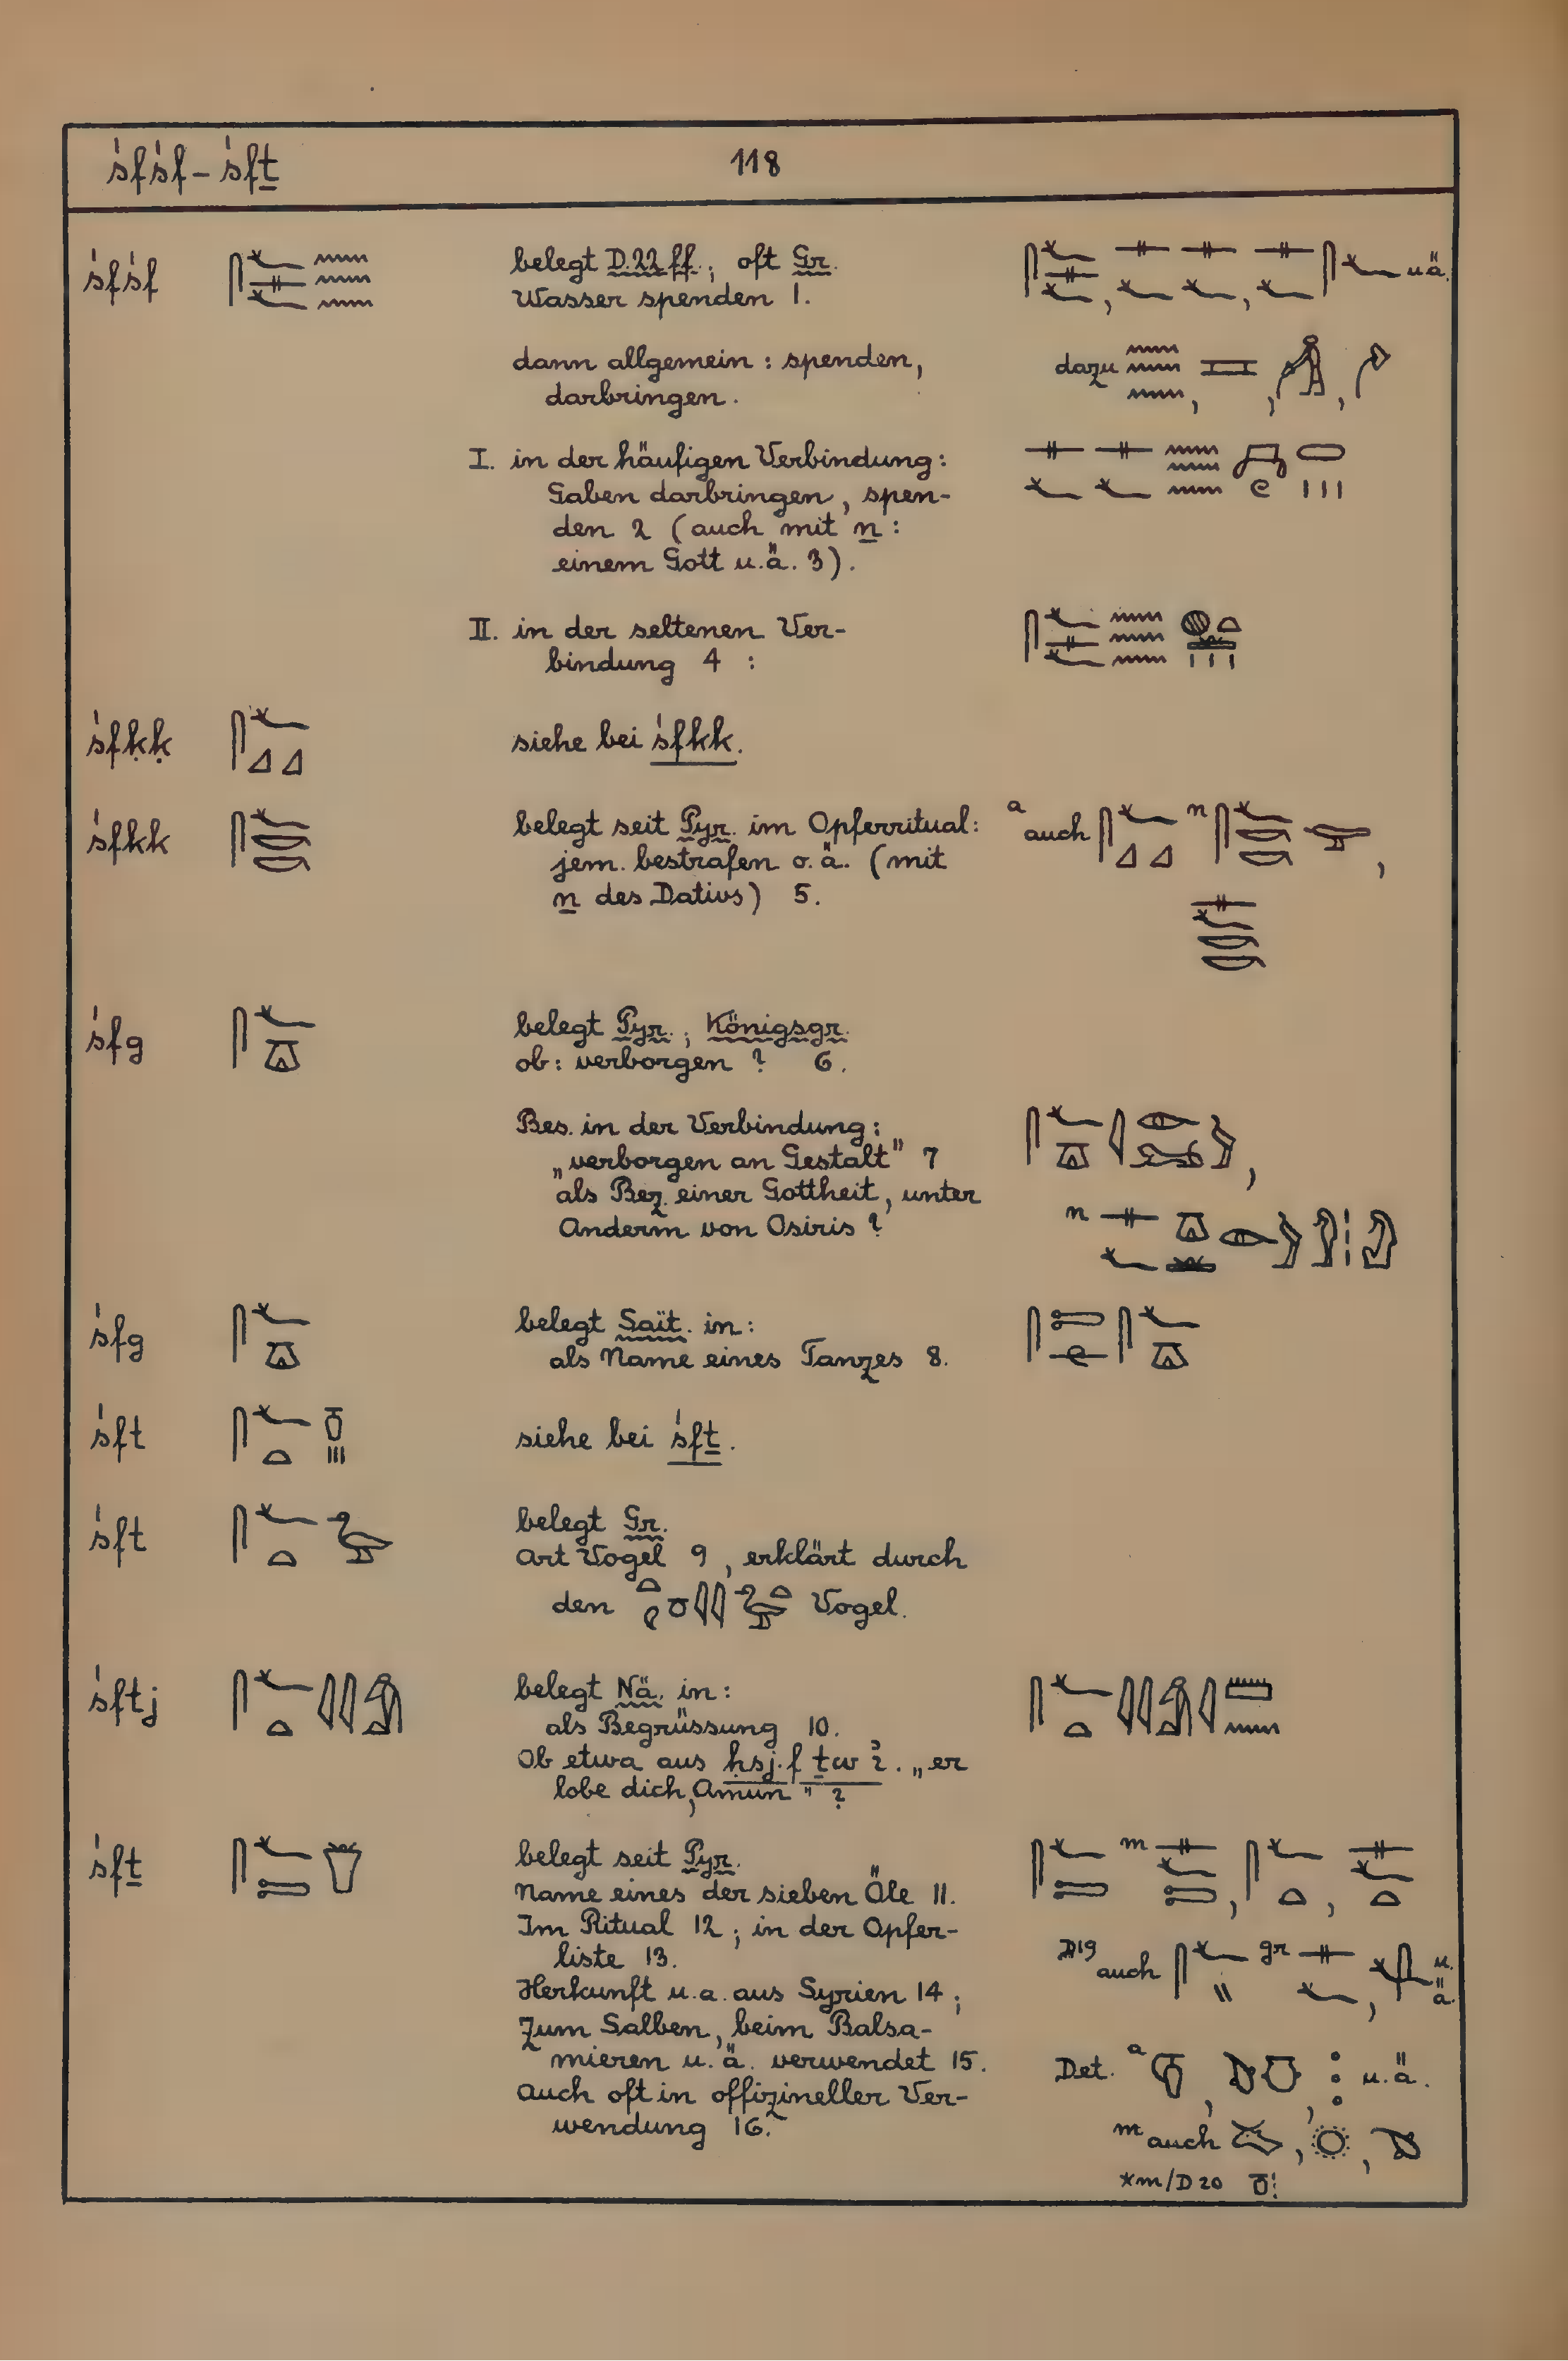 śfśf – śfṯ 118
śfśf belegt D.22 ff.; oft Gr. u.ä.
Wasser spenden 1.
dann allgemein: spenden, dazu
darbringen.
I. in der häufigen Verbindung:
Gaben darbringen, spen-
den 2 (auch mit n:
einem Gott u.ä. 3).
II. in der seltenen Ver-
bindung 4 :
śfḳḳ siehe bei śfkk.
śfkk belegt seit Pyr. im Opferritual: a auch n
jem. bestrafen o.ä. (mit
n des Dativs) 5.
śfg belegt Pyr.; Königsgr.
ob: verborgen ? 6.
Bes. in der Verbindung:
„verborgen an Gestalt" 7
als Bez. einer Gottheit, unter
Anderm von Osiris ? n
śfg belegt Sait. in:
als Name eines Tanzes 8.
śft siehe bei śfṯ.
śft belegt Gr.
Art Vogel 9, erklärt durch
den Vogel.
śftj belegt Nä. in:
als Begrüssung 10.
Ob etwa aus ḥsj.f ṯw ?. „er
lobe dich, Amun" ?
śfṯ belegt seit Pyr. m
Name eines der sieben Öle 11.
Im Ritual 12; in der Opfer-
liste 13. D19 auch gr u.ä.
Herkunft u.a. aus Syrien 14;
Zum Salben, beim Balsa-
mieren u.ä. verwendet 15. Det. a u.ä.
Auch oft in offizineller Ver-
wendung 16. m auch
*m/D20